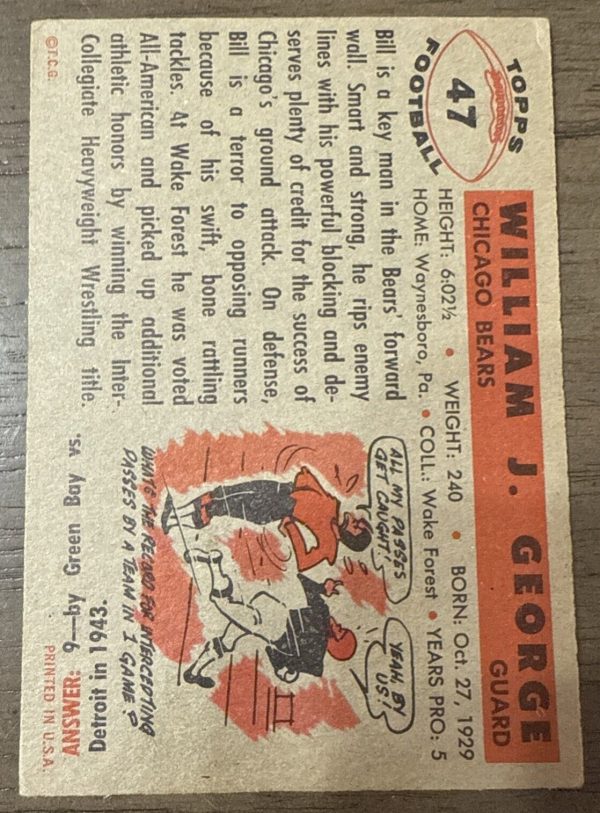 TOPPS
47
FOOTBALL
WILLIAM J. GEORGE
CHICAGO BEARS GUARD
HEIGHT: 6:02½ • WEIGHT: 240 • BORN: Oct. 27, 1929
HOME: Waynesboro, Pa. • COLL.: Wake Forest • YEARS PRO: 5
Bill is a key man in the Bears' forward
wall. Smart and strong, he rips enemy
lines with his powerful blocking and de-
serves plenty of credit for the success of
Chicago's ground attack. On defense,
Bill is a terror to opposing runners
because of his swift, bone rattling
tackles. At Wake Forest he was voted
All-American and picked up additional
athletic honors by winning the Inter-
Collegiate Heavyweight Wrestling title.
©T.C.G.
ALL MY PASSES
GET CAUGHT!
YEAH, BY
US!
WHAT'S THE RECORD FOR INTERCEPTING
PASSES BY A TEAM IN 1 GAME?
ANSWER: 9—by Green Bay vs.
Detroit in 1943.
PRINTED IN U.S.A.